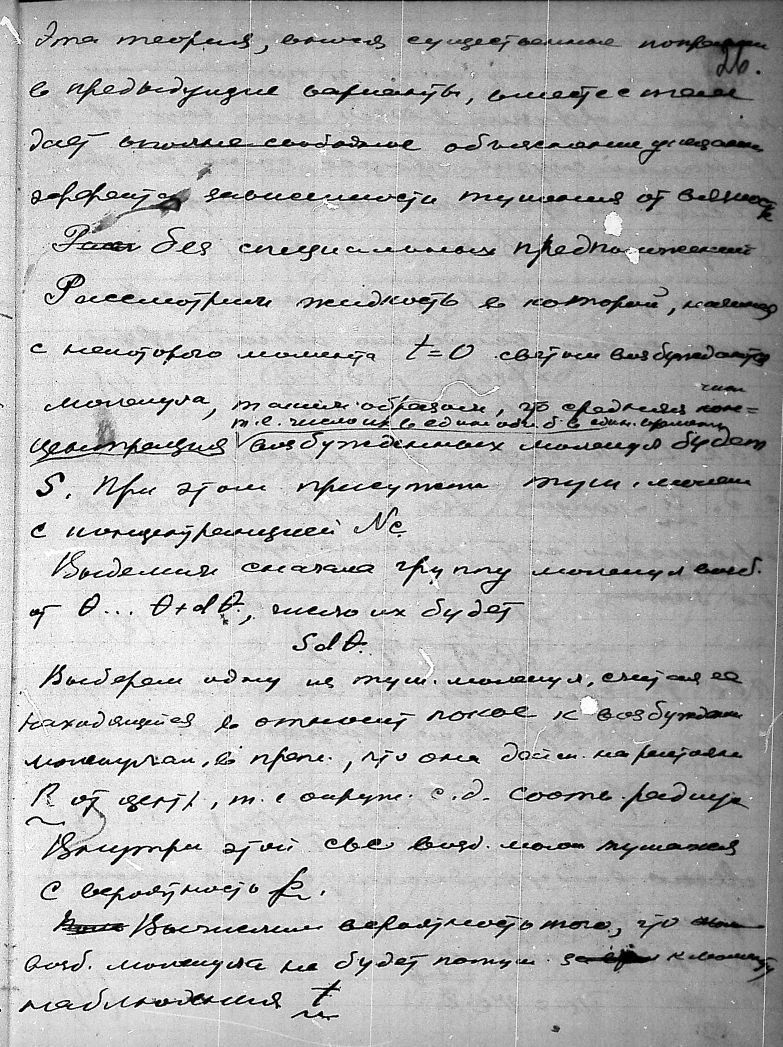 26.
Эта теория, внося существенные поправки
в предыдущие варианты, вместе с тем
дает вполне свободное объяснение указанн
эффекта зависимости тушения от вязкости
без специальных предположений
Рассмотрим жидкость в которой, начиная
с некоторого момента t=0 светом возбуждаются
молекула, таким образом, что средняя кон=
т.е. число их в един. об. в един. времени
центрация возбужденных молекул будет
S. При этом присутств. туш. молек
с концентрацией Nc.
Выделим сначала группу молекул возб.
от θ... θ+dθ, число их будет
Sdθ.
Выберем одну из туш. молекул, считая ее
находящейся в относит покое к возбужден
молекулам, в предп., что она дейст. на расстоян
R от центр, т. е окруж. с.д. соотв. радиуса
Внутри этой сфе возб. мол тушатся
с вероятность
Вычислим вероятность того, что
возб. молекула не будет потуш. к моменту
наблюдения t